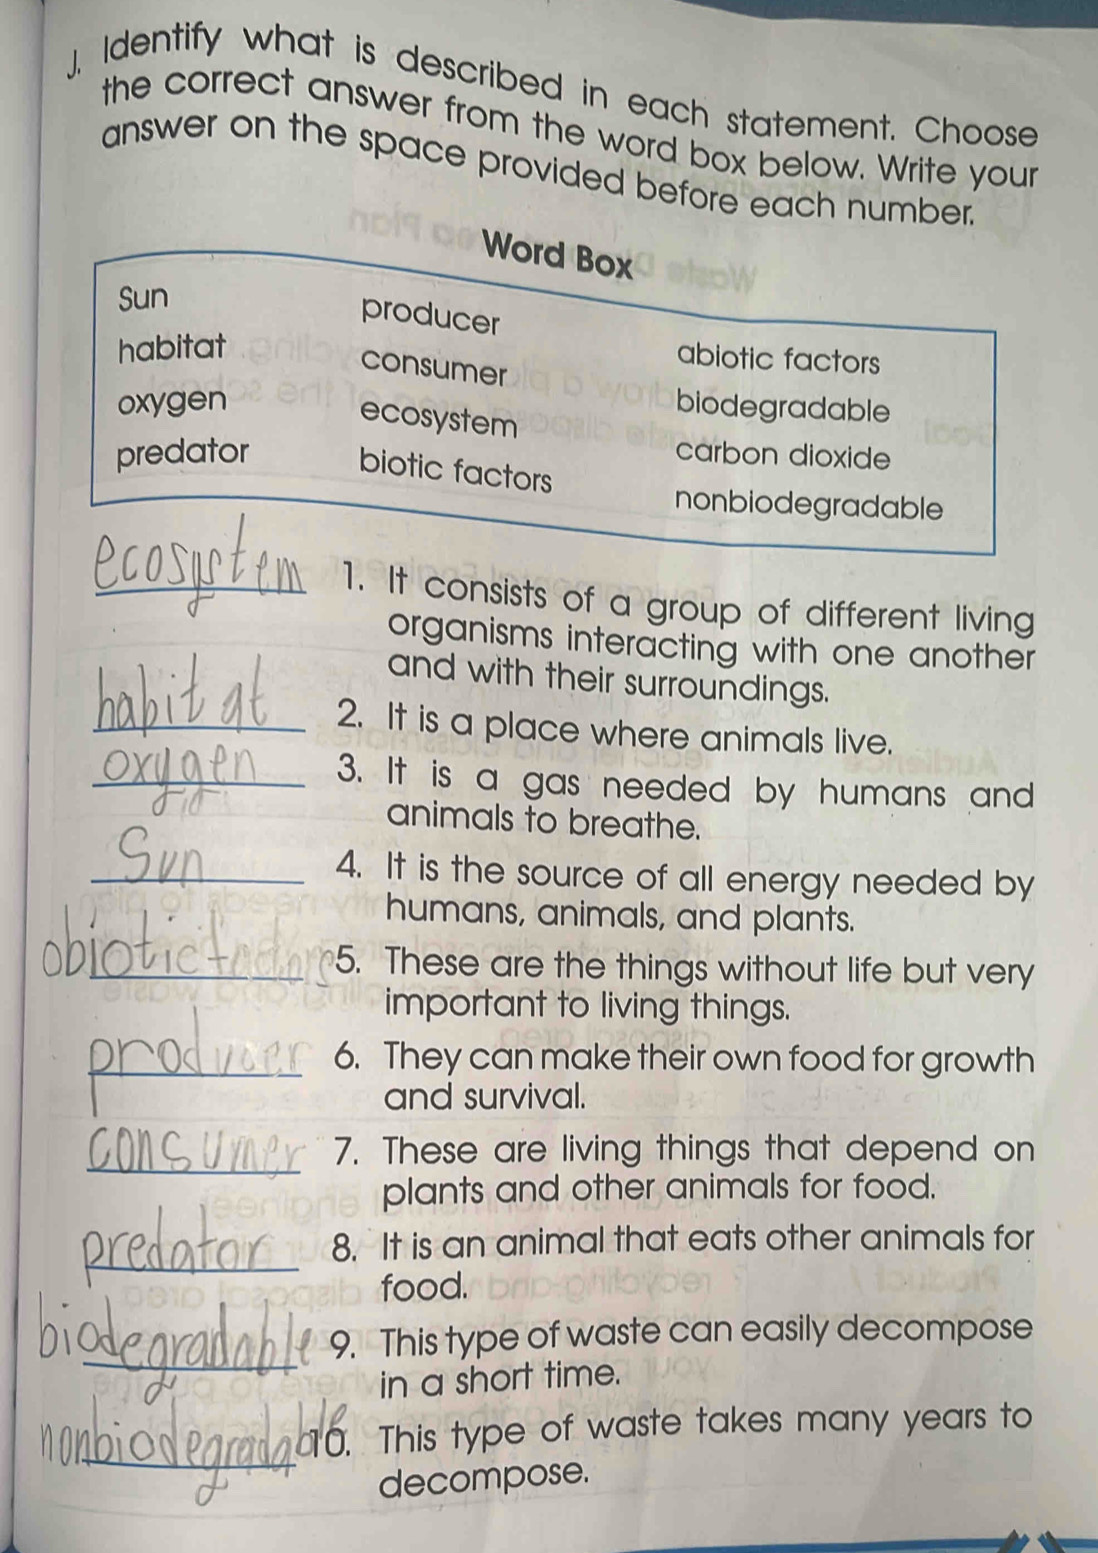 J. Identify what is described in each statement. Choose
the correct answer from the word box below. Write your
answer on the space provided before each number.
Word Box
Sun producer abiotic factors
habitat consumer biodegradable
oxygen ecosystem carbon dioxide
predator biotic factors nonbiodegradable
ecosystem 1. It consists of a group of different living
organisms interacting with one another
and with their surroundings.
habitat 2. It is a place where animals live.
oxygen 3. It is a gas needed by humans and
animals to breathe.
Sun 4. It is the source of all energy needed by
humans, animals, and plants.
abiotic factors 5. These are the things without life but very
important to living things.
producer 6. They can make their own food for growth
and survival.
consumer 7. These are living things that depend on
plants and other animals for food.
predator 8. It is an animal that eats other animals for
food.
biodegradable 9. This type of waste can easily decompose
in a short time.
nonbiodegradable 10. This type of waste takes many years to
decompose.